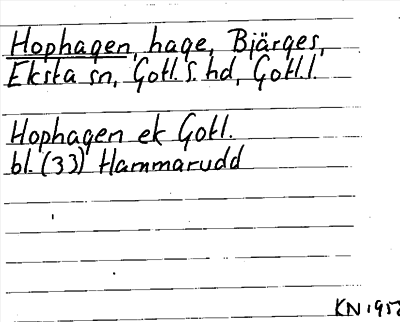 Hophagen, hage, Bjärges,
Eksta sn, Gotl. S. hd, Gotl. l.
Hophagen ek Gotl.
bl. (33) Hammarudd
KN